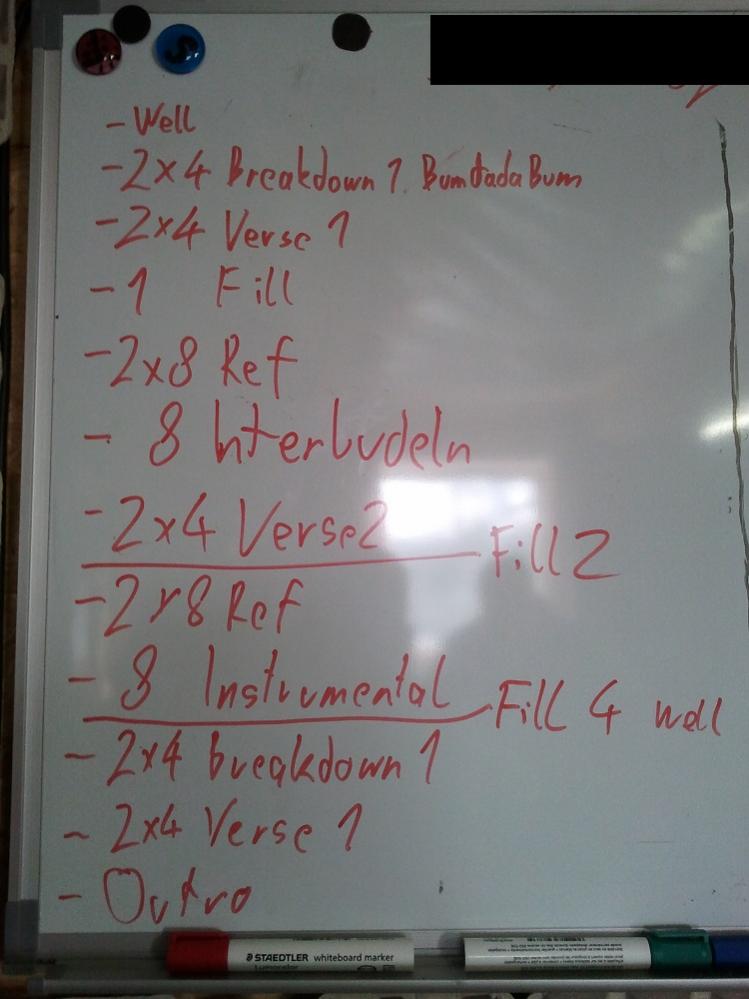 - Well
- 2x4 Breakdown 1. BumtadaBum
- 2x4 Verse 1
- 1 Fill
- 2x8 Ref
- 8 Interludeln
- 2x4 Verse2
Fill 2
- 2x8 Ref
- 8 Instrumental
Fill 4 well
- 2x4 breakdown 1
- 2x4 Verse 1
- Outro
STAEDTLER whiteboard marker
Lumocolor